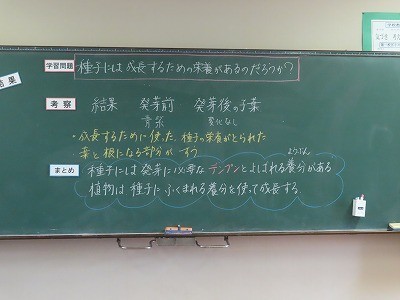 学習問題 種子には成長するための栄養があるのだろうか?
結果
考察 結果 発芽前 発芽後の子葉
青紫 変化なし
・成長するために使った。種子の栄養がとられた
葉と根になる部分が一すつ
ようぶん
まとめ 種子には発芽に必要なデンプンとよばれる養分がある
植物は種子にふくまれる養分を使って成長する。